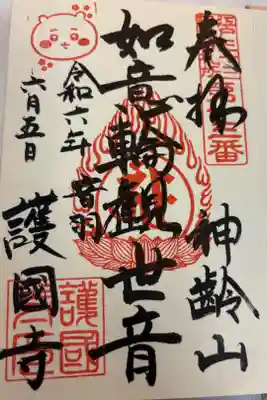 奉拝
神齢山
如意輪観世音
音羽
護國寺
令和六年
六月五日
護國